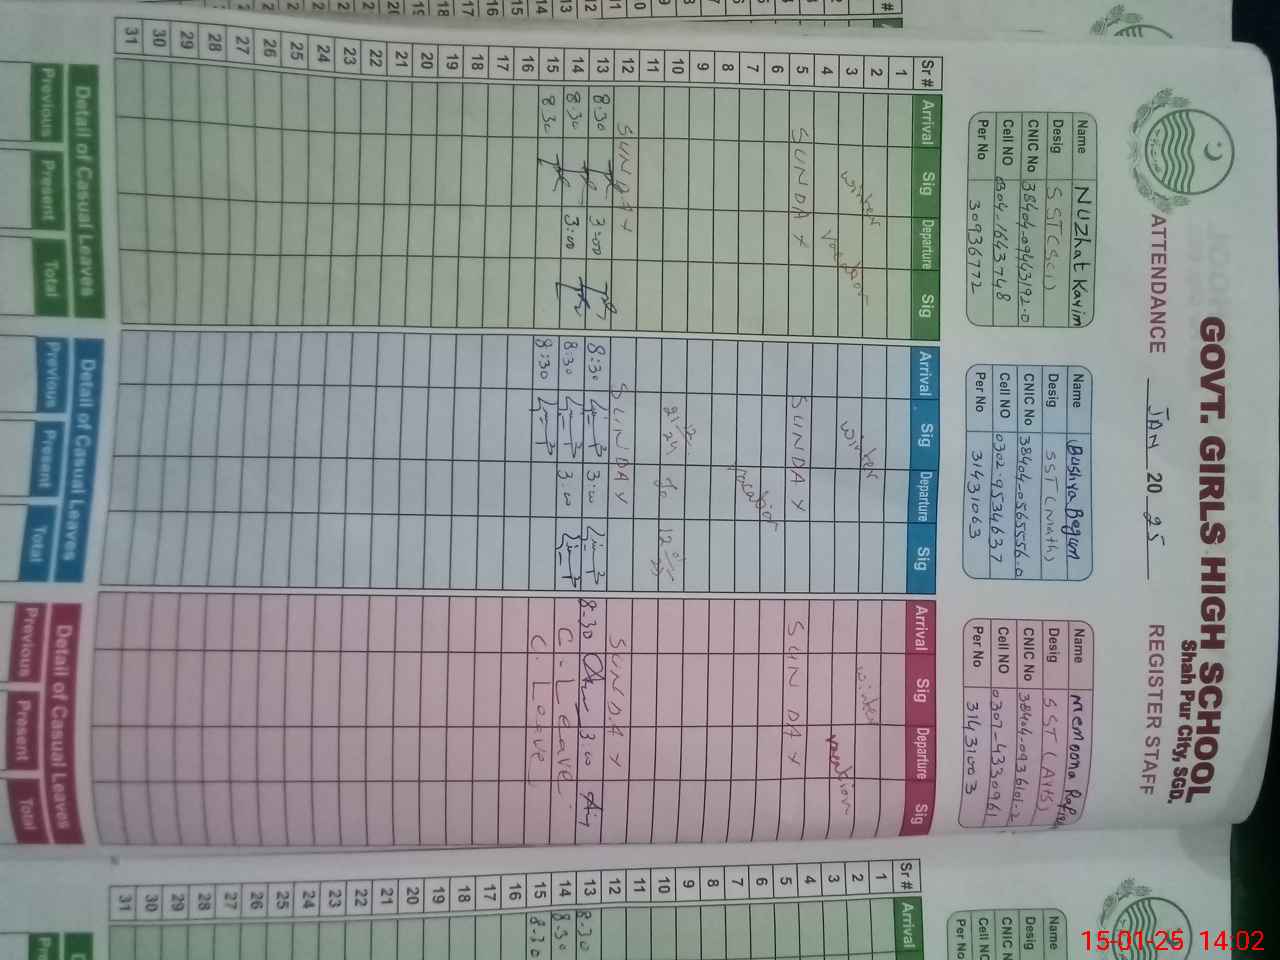 GOVT. GIRLS HIGH SCHOOL
Shah Pur City, SGD.
ATTENDANCE JAN 20 25 REGISTER STAFF
Name Nuzhat Kayim
Desig SST (Sci)
CNIC No 38404-09443192-0
Cell NO 0304-1643748
Per No 30936772
Name Bushra Begum
Desig SST (Math)
CNIC No 38404-0565556-0
Cell NO 0302-9534637
Per No 31431063
Name Memoona
Desig SST (Arts)
CNIC No 38404-0936101-2
Cell NO 0307-4330961
Per No 31431003
Sr# Arrival Sig Departure Sig Arrival Sig Departure Sig Arrival Sig Departure Sig
1
2
3 winter winter winter
4 vacation
5 SUNDAY SUNDAY SUNDAY
6
7 vacation
8
9
10
11
12 SUNDAY SUNDAY SUNDAY
13 8:30 3:00 8:30 3:00 8-30 3:00
14 8:30 3:00 8:30 3:00 C-Leave
15 8:30 8:30 C.Leave
16
17
18
19
20
21
22
23
24
25
26
27
28
29
30
31
Detail of Casual Leaves Detail of Casual Leaves Detail of Casual Leaves
Previous Present Total Previous Present Total Previous Present Total
Name
Desig
CNIC N
Cell NO
Per No
Sr# Arrival
1
2
3
4
5
6
7
8
9
10
11
12
13 8-30
14 8-30
15 8-30
16
17
18
19
20
21
22
23
24
25
26
27
28
29
30
31
15-01-25 14:02